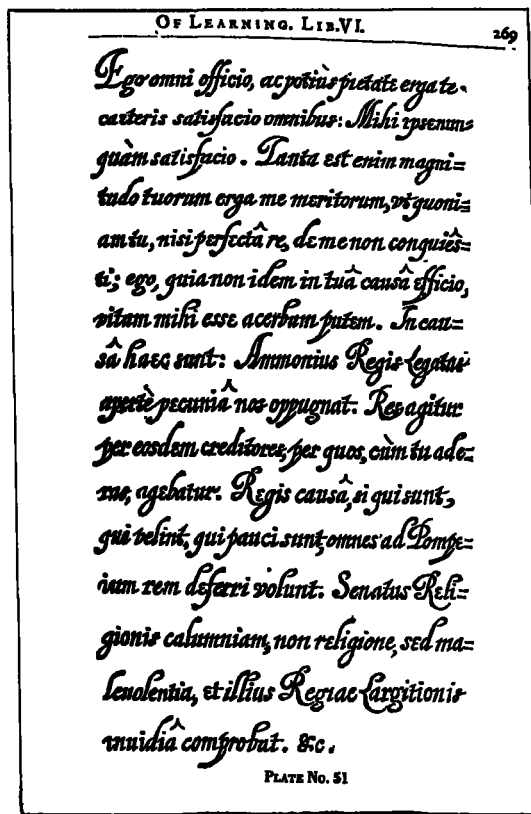 OF LEARNING. LIB.VI.
269
Ego omni officio, ac potiùs pietate erga te.
caeteris satisfacio omnibus: Mihi ipse nun=
quàm satisfacio. Tanta est enim magni=
tudo tuorum erga me meritorum, vt quoni=
am tu, nisi perfectâ re, de me non conquiês=
ti; ego, quia non idem in tuâ causâ efficio,
vitam mihi esse acerbam putem. In cau=
sâ haec sunt: Ammonius Regis Legatus
apertè pecuniâ nos oppugnat. Res agitur
per eosdem creditores, per quos, cùm tu ade=
ras, agebatur. Regis causâ, si qui sunt,
qui velint, qui pauci sunt, omnes ad Pompe=
ium rem deferri volunt: Senatus Reli=
gionis calumniam, non religione, sed ma=
leuolentia, et illius Regiae Largitionis
inuidiâ comprobat. &c.
PLATE NO. 51